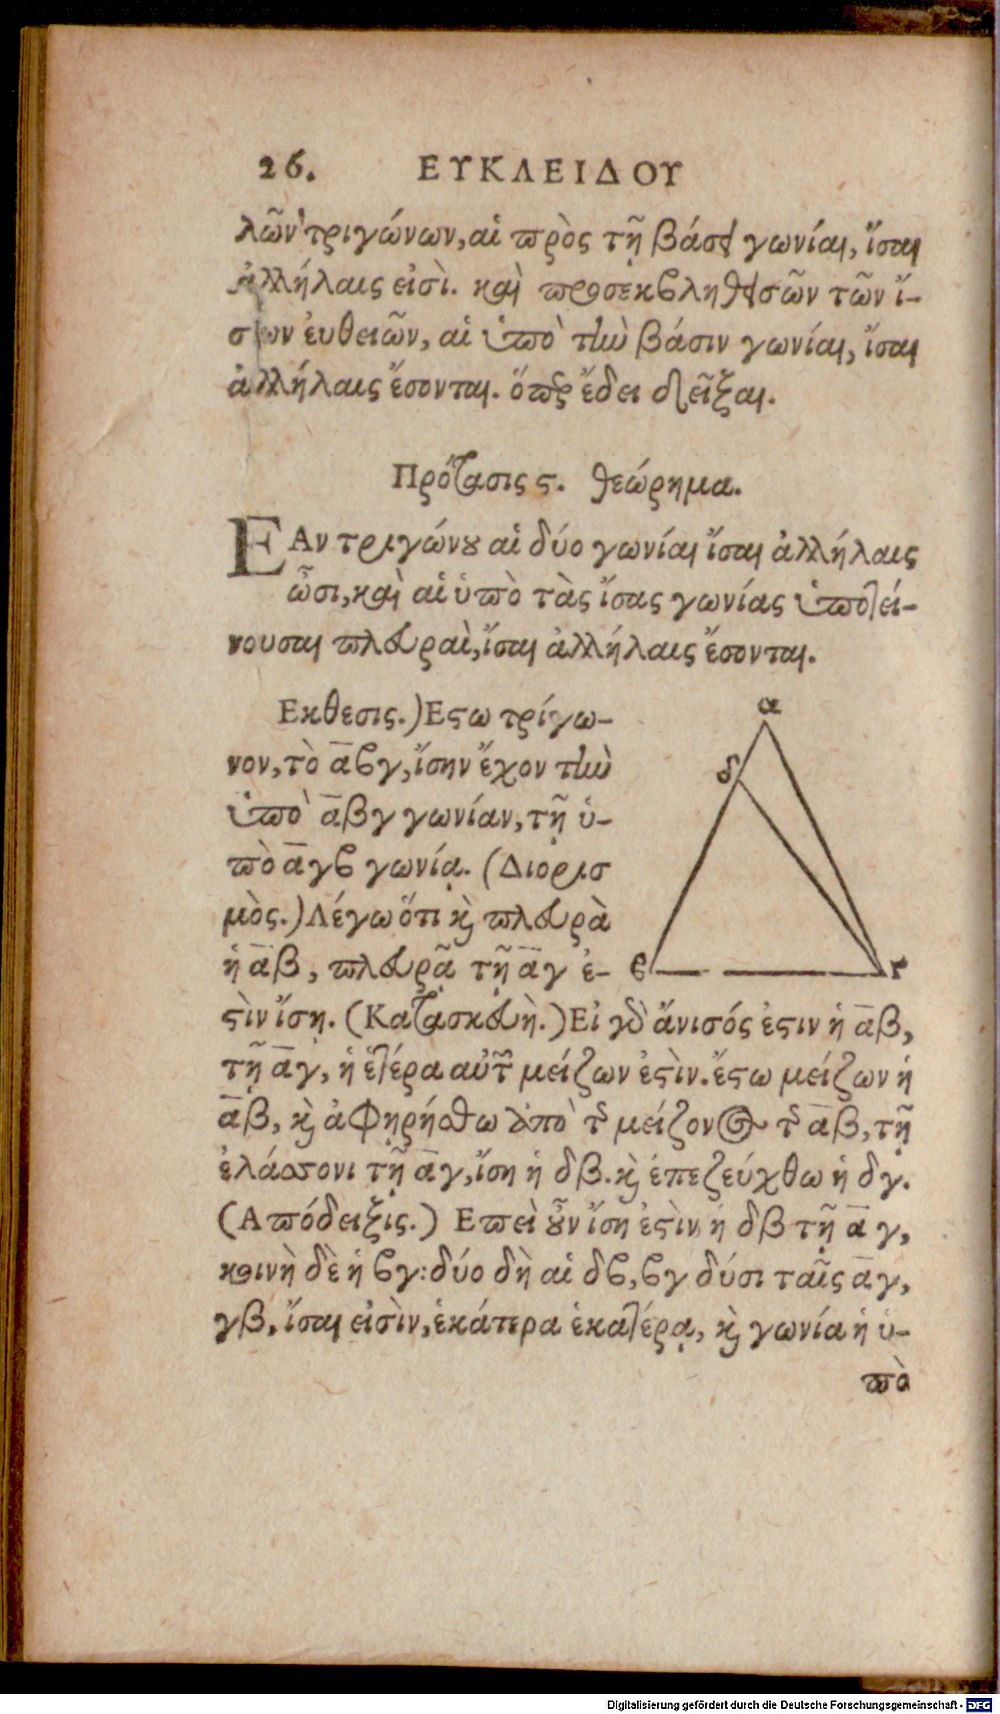 26. ΕΥΚΛΕΙΔΟΥ
λῶν τριγώνων, αἱ πρὸς τῇ βάσει γωνίαι, ἴσαι
ἀλλήλαις εἰσὶ. καὶ προσεκβληθεισῶν τῶν ἴ-
σων ἐυθειῶν, αἱ ὑπὸ τὴν βάσιν γωνίαι, ἴσαι
ἀλλήλαις ἔσονται. ὅπερ ἔδει δεῖξαι.
Πρότασις ϛ. θεώρημα.
ΕΑν τριγώνου αἱ δύο γωνίαι ἴσαι ἀλλήλαις
ὦσι, καὶ αἱ ὑπὸ τὰς ἴσας γωνίας ὑποτεί-
νουσαι πλευραὶ, ἴσαι ἀλλήλαις ἔσονται.
Εκθεσις.) Εστω τρίγω-
νον, τὸ α̅βγ, ἴσην ἔχον τὴν
ὑπὸ α̅βγ γωνίαν, τῇ ὑ-
πὸ α̅γβ γωνίᾳ. (Διορισ
μὸς.) Λέγω ὅτι καὶ πλευρὰ
ἡ α̅β, πλευρᾷ τῇ α̅γ ἐ-
στὶν ἴση. (Κατασκευὴ.) Εἰ γὰρ ἄνισός ἐστιν ἡ α̅β,
τῇ α̅γ, ἡ ἑτέρα αὐτῶν μείζων ἐστὶν. ἔστω μείζων ἡ
α̅β, καὶ ἀφηρήσθω ἀπὸ τῆς μείζονος τῆς α̅β, τῇ
ἐλάσσονι τῇ α̅γ, ἴση ἡ δβ. καὶ ἐπεζεύχθω ἡ δγ.
(Απόδειξις.) Επεὶ οὖν ἴση ἐστὶν ἡ δβ τῇ α̅γ,
κοινὴ δὲ ἡ βγ: δύο δὴ αἱ δβ, βγ δύσι ταῖς α̅γ,
γβ, ἴσαι εἰσὶν, ἑκάτερα ἑκατέρᾳ, καὶ γωνία ἡ ὑ-
πὸ
α
δ
β
γ
Digitalisierung gefördert durch die Deutsche Forschungsgemeinschaft - DFG